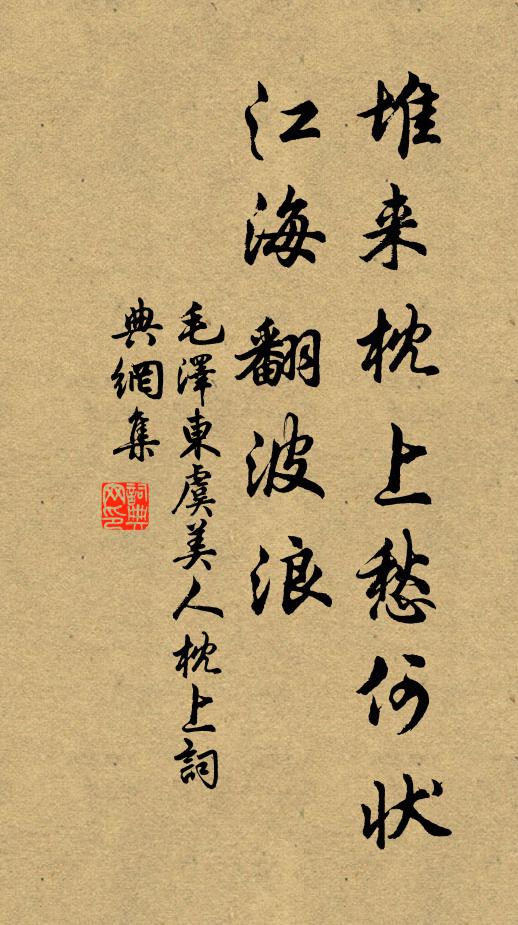 堆来枕上愁何状
江海翻波浪
毛澤東虞美人枕上詞
典網集
詞典
网印